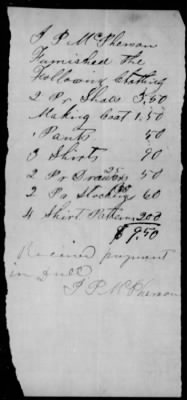 J P McPherson
Furnished the
Following Clothing
2 Pr Shoes 3.50
Making Coat 1.50
1 Pants 50
3 Shirts 90
2 Pr Drawers 25 50
2 Pr Stockings 60
4 Shirt Pattern 200
$ 9.50
Received payment
in full
J P McPherson